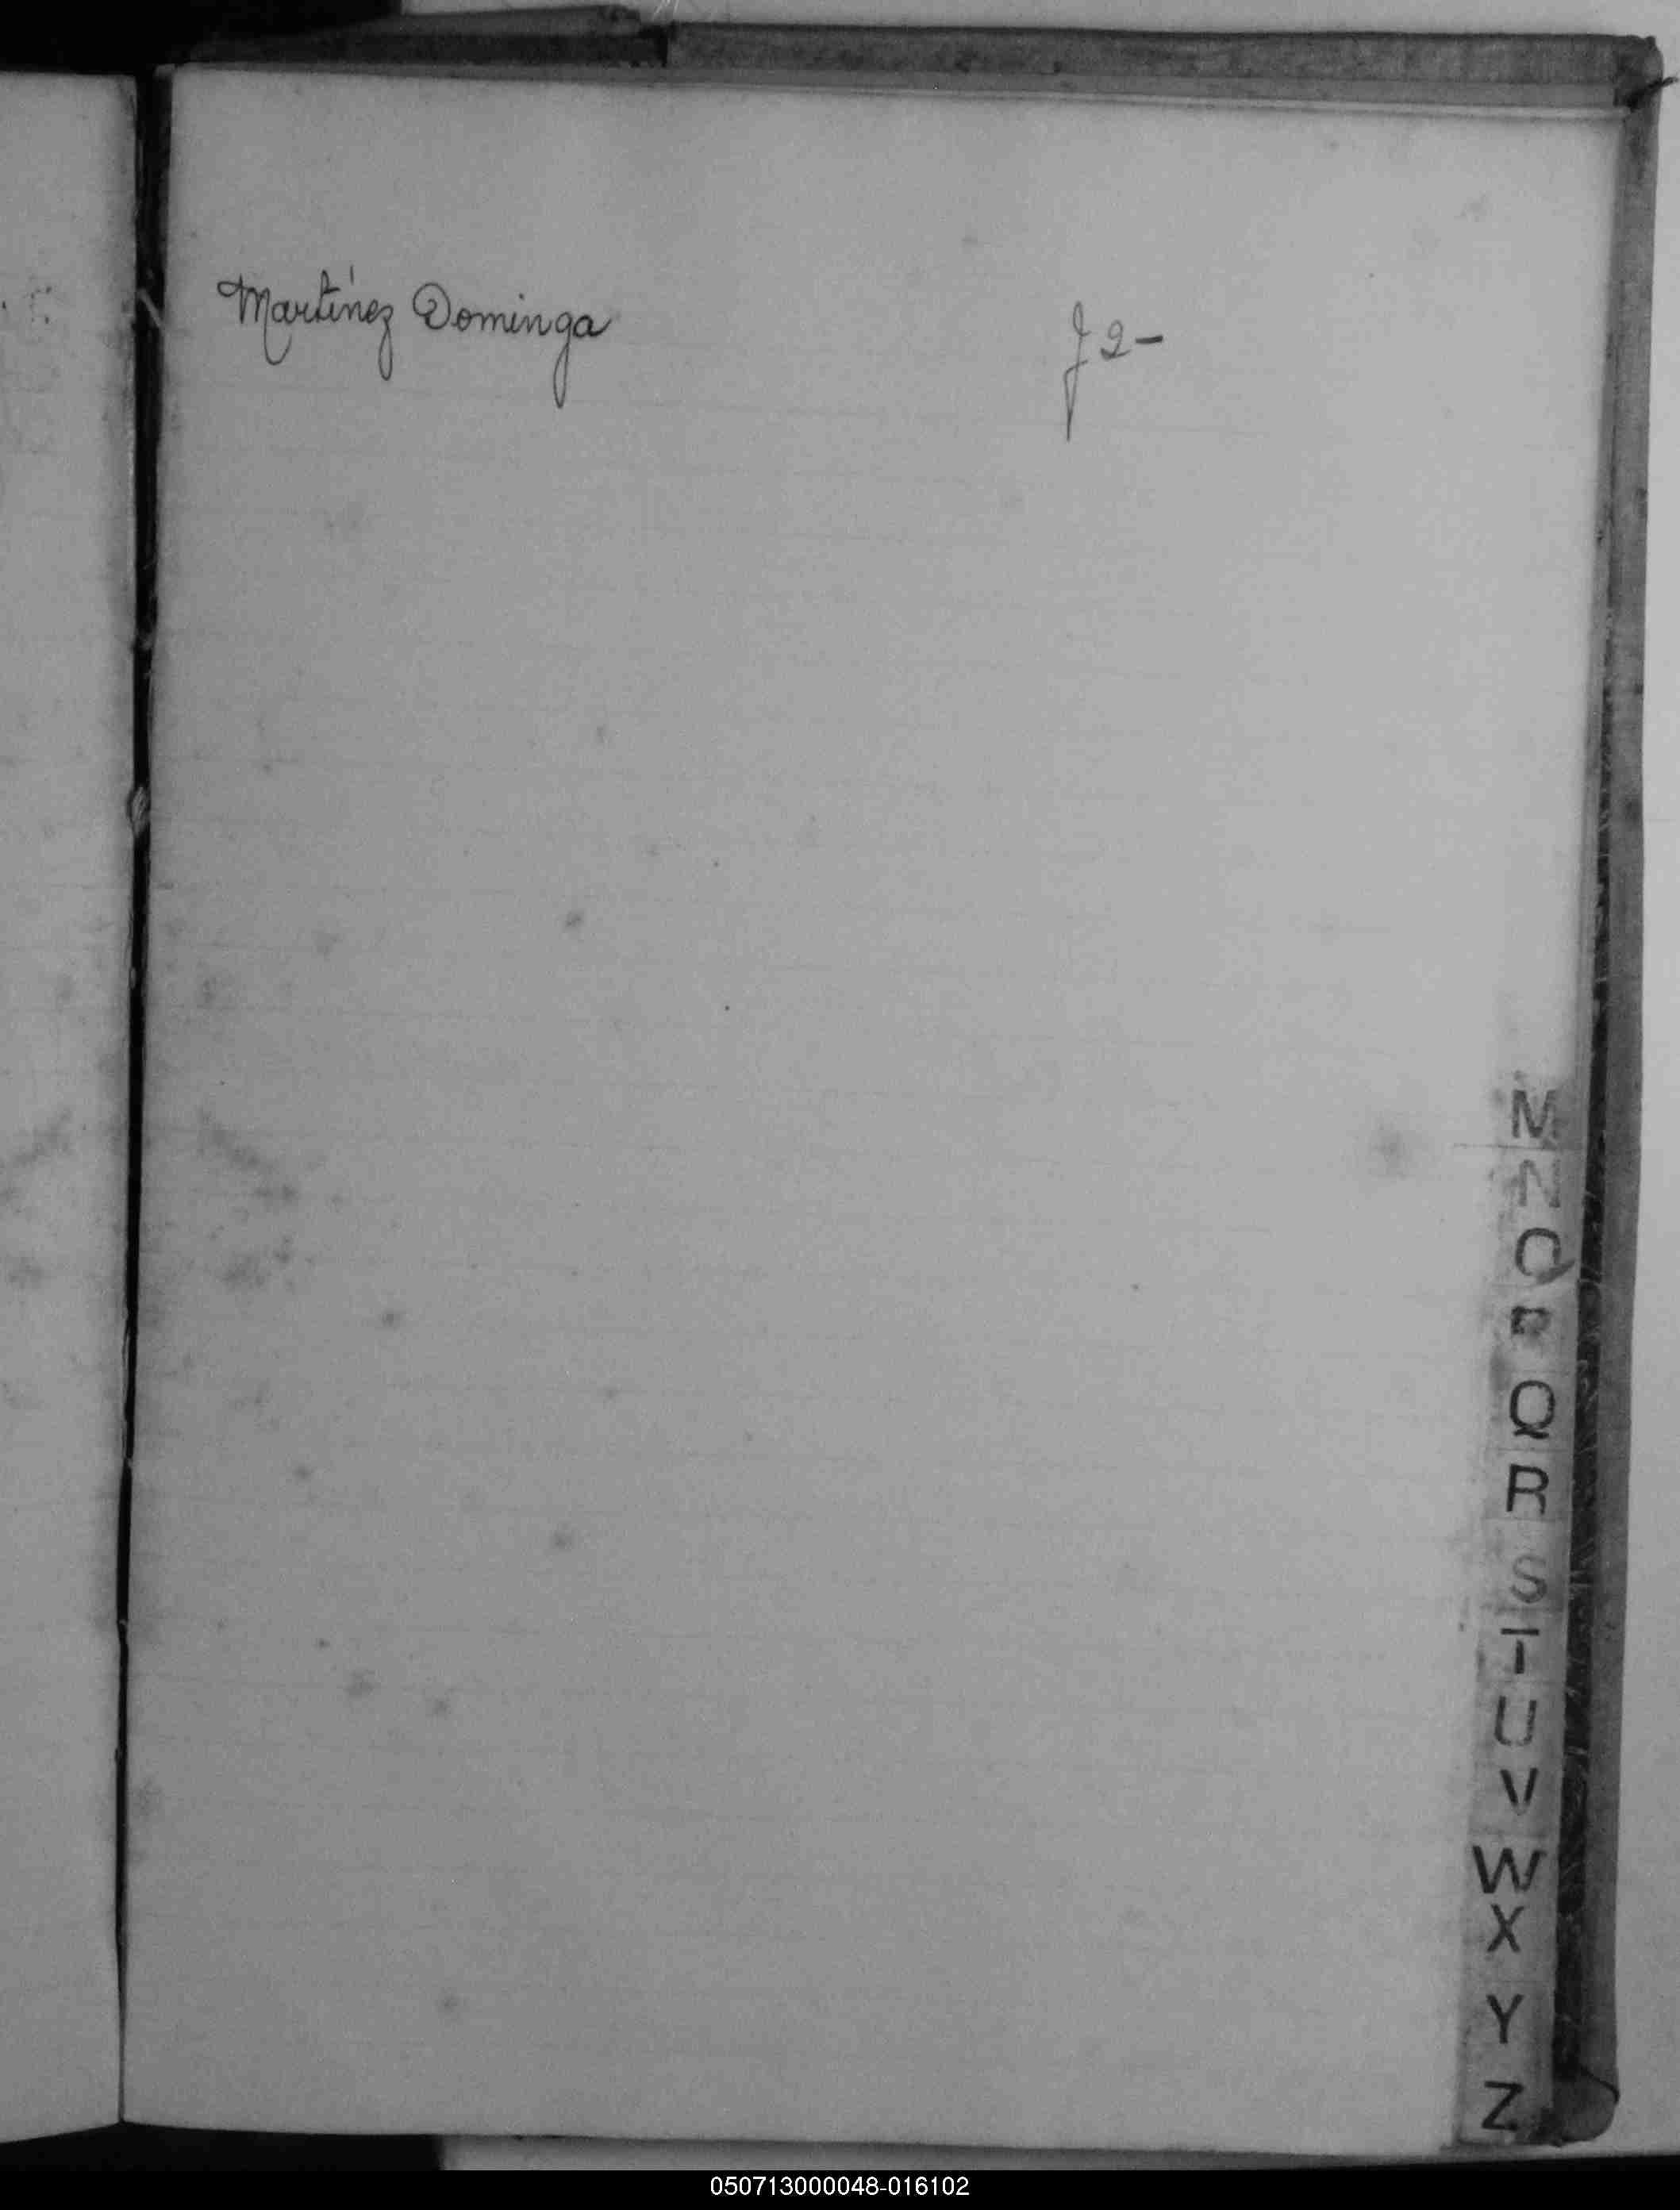 Martínez Dominga f 2-
M
N
O
P
Q
R
S
T
U
V
W
X
Y
Z
050713000048-016102